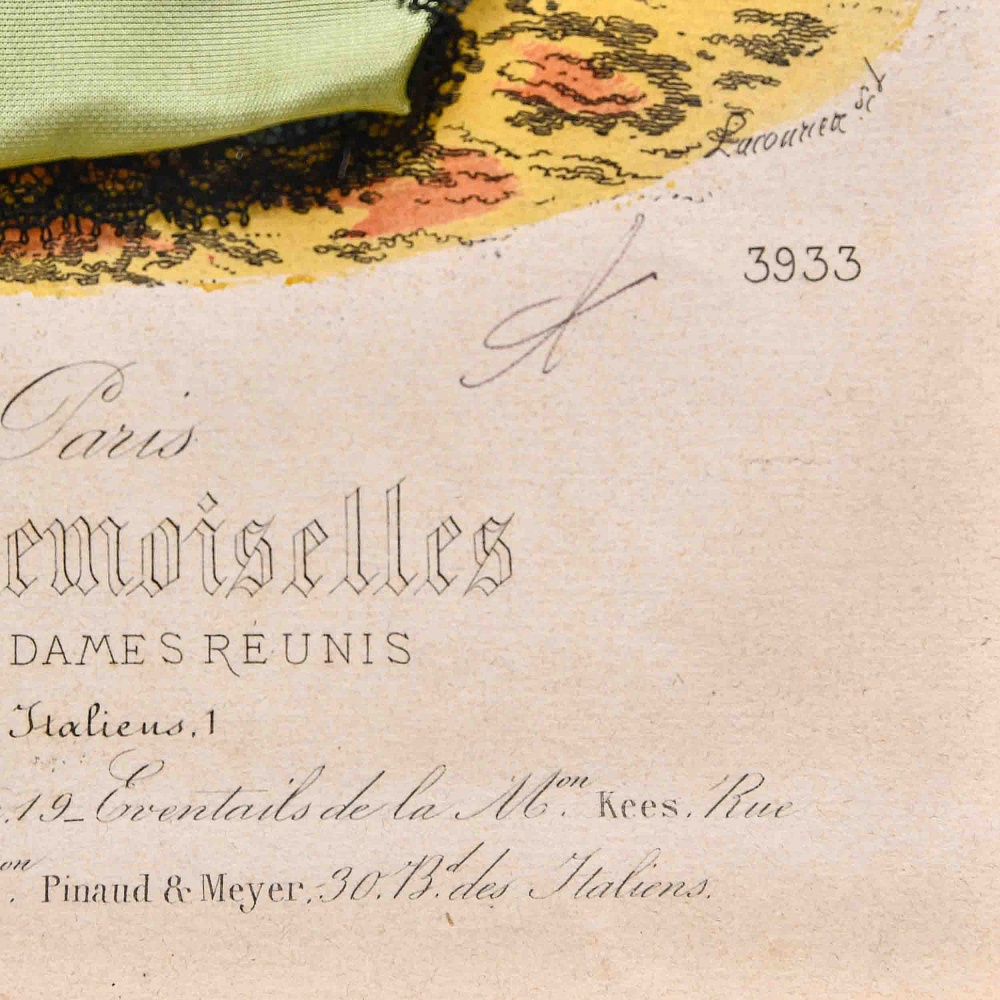 Lacourier sc
3933
Paris
emoiselles
DAMES RÉUNIS
Italiens, 1
19_ Eventails de la M.on Kees. Rue
on. Pinaud & Meyer, 30. B.d des Italiens.